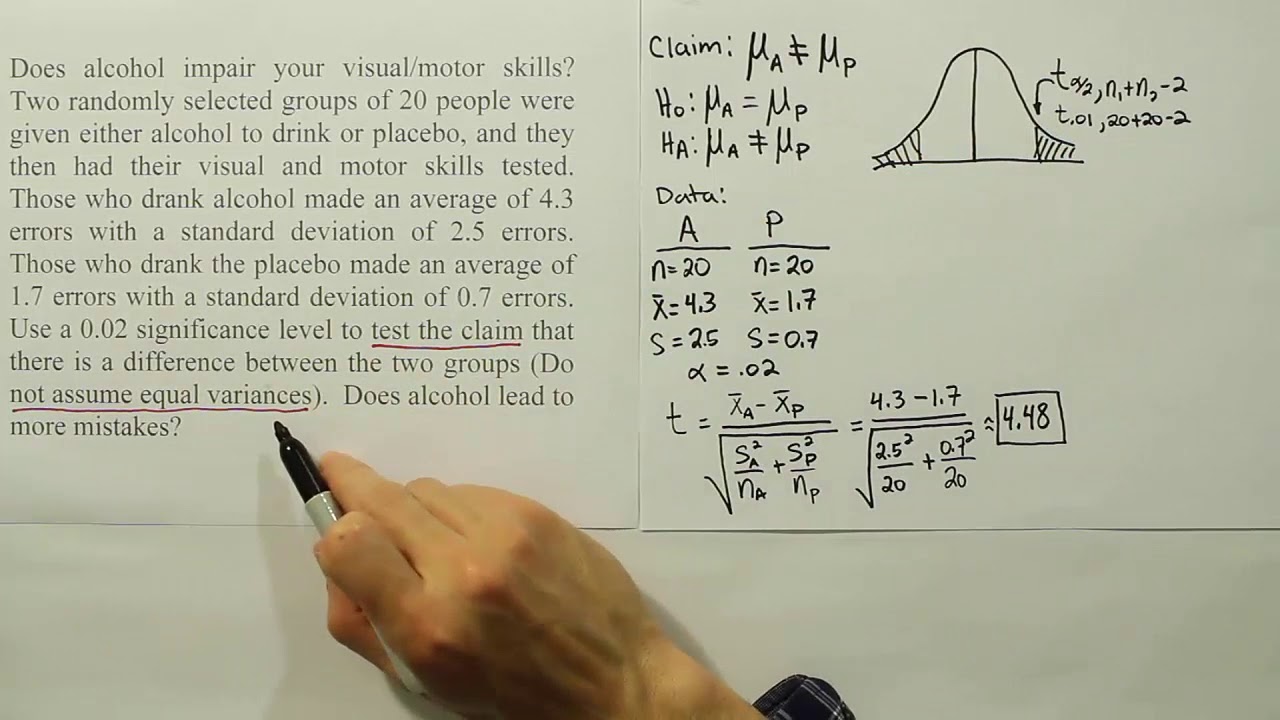 Does alcohol impair your visual/motor skills?
Two randomly selected groups of 20 people were
given either alcohol to drink or placebo, and they
then had their visual and motor skills tested.
Those who drank alcohol made an average of 4.3
errors with a standard deviation of 2.5 errors.
Those who drank the placebo made an average of
1.7 errors with a standard deviation of 0.7 errors.
Use a 0.02 significance level to test the claim that
there is a difference between the two groups (Do
not assume equal variances). Does alcohol lead to
more mistakes?
Claim: μA ≠ μP
H₀: μA = μP
HA: μA ≠ μP
tα/2, n₁+n₂-2
t.01, 20+20-2
Data:
A P
n=20 n=20
x̄=4.3 x̄=1.7
S=2.5 S=0.7
α=.02
t = (x̄A - x̄P) / √(SA²/nA + SP²/nP) = (4.3-1.7) / √(2.5²/20 + 0.7²/20) ≈ 4.48